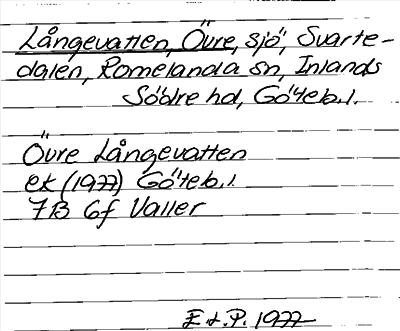 Långevatten, Övre, sjö, Svarte-
dalen, Romelanda sn, Inlands
Södre hd, Göteb. l.
Övre Långevatten
ek (1977) Göteb. l.
7B 6f Valler
E.d.P. 1977